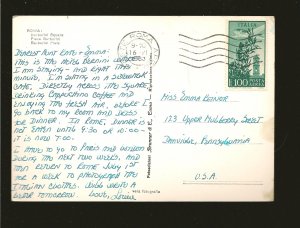 ROMA
Barberini Square
Piazza Barberini
Barberini Platz
Dearest Aunt Kate & Emma-
This is the Hotel Bernini where
I'm staying - and right this
minute, I'm sitting in a sidewalk
cafe, directly across the square
drinking Cappuccino coffee and
enjoying the fresh air, before I
go back to my room and dress
for dinner. In Rome, dinner is
not eaten until 9:30 or 10:00 -
it is now 7:00.
I have to go to Paris and London
during the next two weeks, and
then return to Rome July 1st
for a week to photograph the
Italian clothes. Will write a
letter tomorrow. Love,
ITALIA
100
POSTA AEREA
Miss Emma
123 Upper Mulberry Street
Danville, Pennsylvania
U.S.A.
vera fotografia